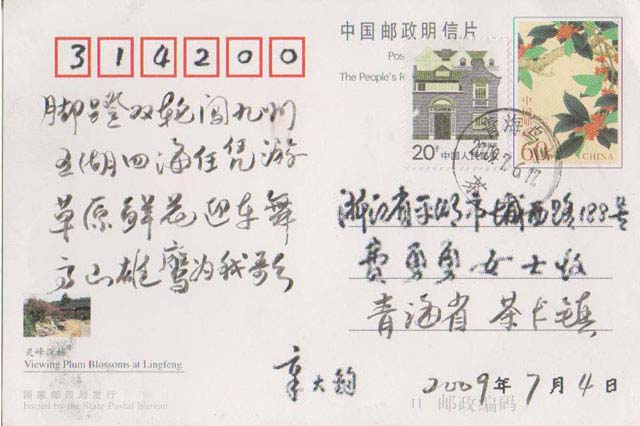 314200
中国邮政明信片
Pos
The People's R
脚蹬双轮闯九州
五湖四海任凭游
草原鲜花迎车舞
高山雄鹰为我歌
20分 中国人民邮政
中国邮政
60分 CHINA
青海乌
2009.7.6.17
茶
浙江省平湖市城西路188号
费勇勇女士收
青海省茶卡镇
章大钧
2009年7月4日
灵峰探梅
Viewing Plum Blossoms at Lingfeng
国家邮政局发行
Issued by the State Postal Bureau
11 邮政编码